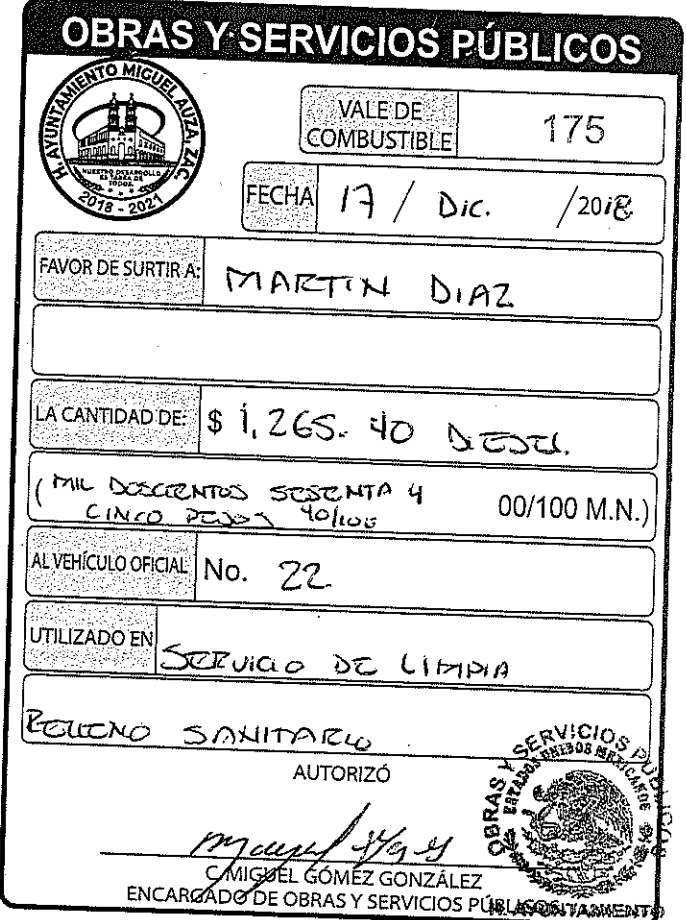 OBRAS Y SERVICIOS PÚBLICOS
H. AYUNTAMIENTO MIGUEL AUZA, ZAC.
NUESTRO DESARROLLO
ES TAREA DE
TODOS.
2018 - 2021
VALE DE
COMBUSTIBLE
175
FECHA 17 / Dic. /2018
FAVOR DE SURTIR A: MARTIN DIAZ
LA CANTIDAD DE: $ 1,265.40 DIESEL.
(MIL DOSCIENTOS SESENTA Y
CINCO PESOS 40/100 00/100 M.N.)
AL VEHÍCULO OFICIAL No. 22
UTILIZADO EN SERVICIO DE LIMPIA
RELLENO SANITARIO
AUTORIZÓ
C. MIGUEL GÓMEZ GONZÁLEZ
ENCARGADO DE OBRAS Y SERVICIOS PÚBLICOS
OBRAS Y SERVICIOS PÚBLICOS
ESTADOS UNIDOS MEXICANOS
H. AYUNTAMIENTO